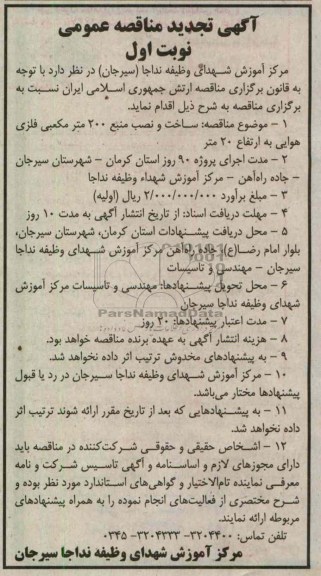 آگهی تجدید مناقصه عمومی
نوبت اول
مرکز آموزش شهدای وظیفه نداجا (سیرجان) در نظر دارد با توجه
به قانون برگزاری مناقصه ارتش جمهوری اسلامی ایران نسبت به
برگزاری مناقصه به شرح ذیل اقدام نماید.
۱ – موضوع مناقصه: ساخت و نصب منبع ۲۰۰ متر مکعبی فلزی
هوایی به ارتفاع ۲۰ متر
۲ – مدت اجرای پروژه ۹۰ روز استان کرمان – شهرستان سیرجان
– جاده راه‌آهن – مرکز آموزش شهداء وظیفه نداجا
۳ – مبلغ برآورد ۲/۰۰۰/۰۰۰/۰۰۰ ریال (اولیه)
۴ – مهلت دریافت اسناد: از تاریخ انتشار آگهی به مدت ۱۰ روز
۵ – محل دریافت پیشنهادات استان کرمان، شهرستان سیرجان،
بلوار امام رضا(ع)، جاده راه‌آهن مرکز آموزش شهدای وظیفه نداجا
سیرجان – مهندسی و تاسیسات
۶ – محل تحویل پیشنهادها: مهندسی و تاسیسات مرکز آموزش
شهدای وظیفه نداجا سیرجان
ParsNamadData
۷ – مدت اعتبار پیشنهادها: ۲۰ روز
۸ – هزینه انتشار آگهی به عهده برنده مناقصه خواهد بود.
۹ – به پیشنهادهای مخدوش ترتیب اثر داده نخواهد شد.
۱۰ – مرکز آموزش شهدای وظیفه نداجا سیرجان در رد یا قبول
پیشنهادها مختار می‌باشد.
۱۱ – به پیشنهادهایی که بعد از تاریخ مقرر ارائه شوند ترتیب اثر
داده نخواهد شد.
۱۲ – اشخاص حقیقی و حقوقی شرکت‌کننده در مناقصه باید
دارای مجوزهای لازم و اساسنامه و آگهی تاسیس شرکت و نامه
معرفی نماینده تام‌الاختیار و گواهی‌های استاندارد مورد نظر بوده و
شرح مختصری از فعالیت‌های انجام نموده را به همراه پیشنهادهای
مربوطه ارائه نمایند.
تلفن تماس: ۳۲۰۴۴۰۰– ۳۲۰۴۳۳۳– ۰۳۴۵
مرکز آموزش شهدای وظیفه نداجا سیرجان